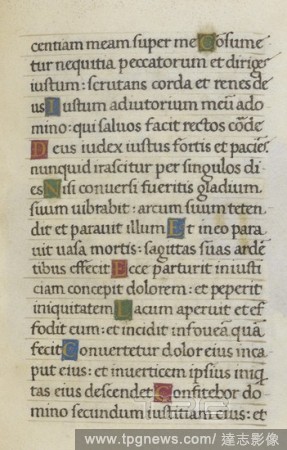 centiam meam super me Cosume
tur nequitia peccatorum et diriges
iustum: scrutans corda et renes de
us Iustum adiutorium meū a do
mino: qui salvos facit rectos cōde
Deus iudex iustus fortis et paciēs
nunquid irascitur per singulos di
es Nisi conversi fueritis gladium
suum vibrabit: arcum suum teten
dit et paravit illum Et in eo para
vit vasa mortis: sagittas suas ardē
tibus effecit Ecce parturit iniusti
ciam concepit dolorem: et peperit
iniquitatem Lacum aperuit et ef
fodit eum: et incidit in foveā quā
fecit Convertetur dolor eius in ca
put eius: et in verticem ipsius iniq
tas eius descendet Cōfitebor do
mino secundum iustitiam eius: et
www.tpgnews.com/達志影像